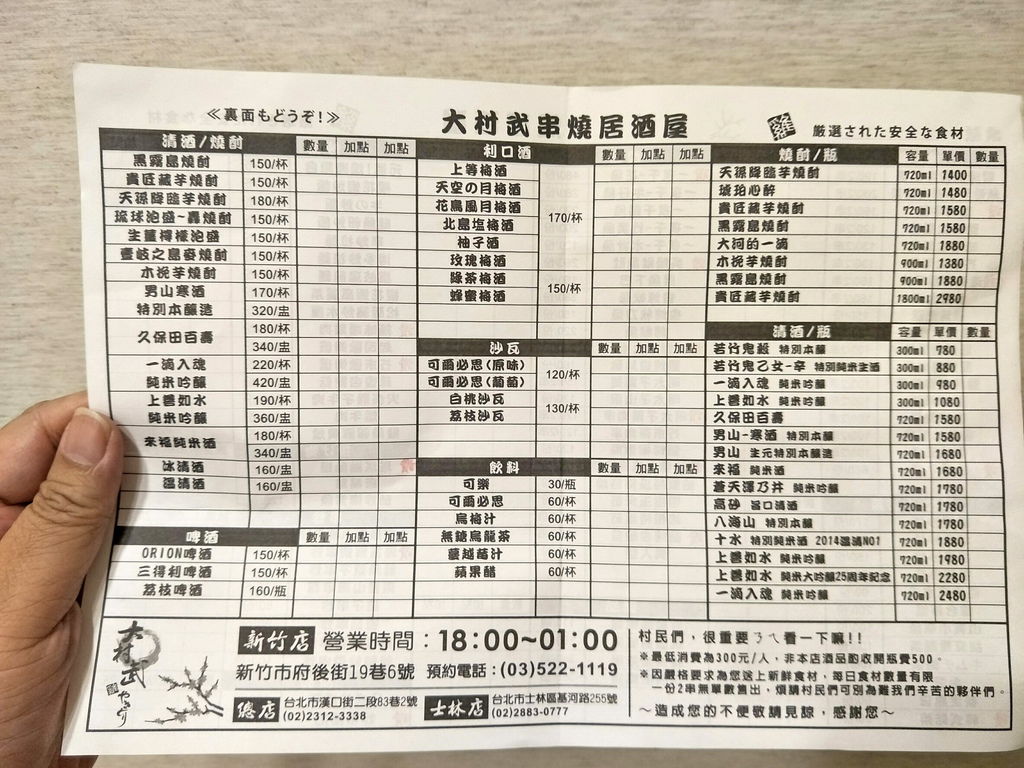 ≪裏面もどうぞ!≫
大村武串燒居酒屋
雞 厳選された安全な食材
清酒/燒酎 數量 加點 加點
黑霧島燒酎 150/杯
貴匠藏芋燒酎 150/杯
天孫降臨芋燒酎 180/杯
琉球泡盛~轟燒酎 150/杯
生薑檸檬泡盛 150/杯
壹岐之島麥燒酎 150/杯
木挽芋燒酎 150/杯
男山寒酒 170/杯
特別本釀造 320/盅
久保田百壽 180/杯
340/盅
一滴入魂 220/杯
純米吟釀 420/盅
上善如水 190/杯
純米吟釀 360/盅
來福純米酒 180/杯
340/盅
冰清酒 160/盅
溫清酒 160/盅
啤酒 數量 加點 加點
ORION啤酒 150/杯
三得利啤酒 150/杯
荔枝啤酒 160/瓶
利口酒 數量 加點 加點
上等梅酒
天空の月梅酒
花鳥風月梅酒
170/杯
北島塩梅酒
柚子酒
玫瑰梅酒
綠茶梅酒
150/杯
蜂蜜梅酒
沙瓦 數量 加點 加點
可爾必思(原味)
120/杯
可爾必思(葡萄)
白桃沙瓦
130/杯
荔枝沙瓦
飲料 數量 加點 加點
可樂 30/瓶
可爾必思 60/杯
烏梅汁 60/杯
無糖烏龍茶 60/杯
蔓越莓汁 60/杯
蘋果醋 60/杯
燒酎/瓶 容量 單價 數量
天孫降臨芋燒酎 720ml 1400
琥珀心醉 720ml 1480
貴匠藏芋燒酎 720ml 1580
黑霧島燒酎 720ml 1580
大河的一滴 720ml 1880
木挽芋燒酎 900ml 1380
黑霧島燒酎 900ml 1880
貴匠藏芋燒酎 1800ml 2980
清酒/瓶 容量 單價 數量
若竹鬼殺 特別本釀 300ml 780
若竹鬼乙女-辛 特別純米生酒 300ml 880
一滴入魂 純米吟釀 300ml 980
上善如水 純米吟釀 300ml 1080
久保田百壽 720ml 1580
男山-寒酒 特別本釀 720ml 1580
男山 生元特別本釀造 720ml 1680
來福 純米酒 720ml 1680
蒼天澤乃井 純米吟釀 720ml 1780
高砂 旨口清酒 720ml 1780
八海山 特別本釀 720ml 1780
十水 特別純米酒 2014溫清NO1 720ml 1880
上善如水 純米吟釀 720ml 1980
上善如水 純米大吟釀25周年記念 720ml 2280
一滴入魂 純米吟釀 720ml 2480
大村武
新竹店 營業時間:18:00~01:00
新竹市府後街19巷6號 預約電話:(03)522-1119
總店 台北市漢口街二段83巷2號
(02)2312-3338
士林店 台北市士林區基河路255號
(02)2883-0777
村民們,很重要ㄋㄟ看一下嘛!!
※最低消費為300元/人,非本店酒品酌收開瓶費500。
※因嚴格要求為您送上新鮮食材,每日食材數量有限
一份2串無單數售出,煩請村民們可別為難我們辛苦的夥伴們。
~造成您的不便敬請見諒,感謝您~